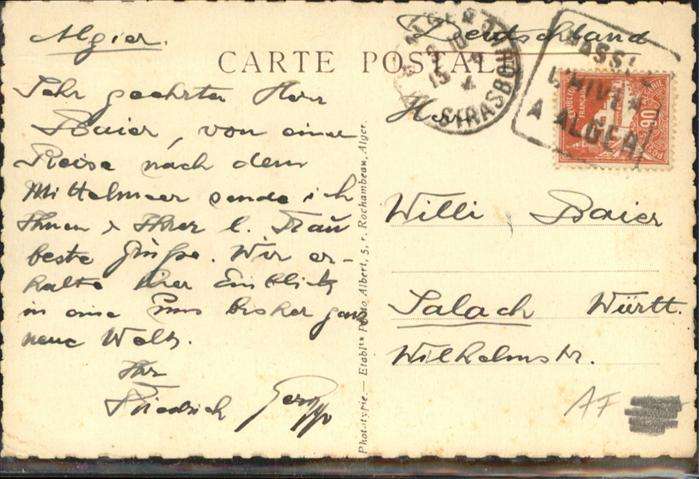 Algier.
Deutschland
CARTE POSTALE
Sehr geehrter Herr
Baier, von einer
Reise nach dem
Mittelmeer sende ich
Ihnen & Ihrer l. Frau
beste Grüße. Wir er-
halten hier Einblick
in eine uns bisher ganz
neue Welt.
Ihr
Friedrich
Phototypie.— Etablts Photo Albert, 5, r. Rochambeau, Alger.
ALGER
STRASBOURG
PASSEZ
L'HIVER
A ALGER
POSTES
90
Herrn
Willi Baier
Salach Württ.
Wilhelmstr.
AF